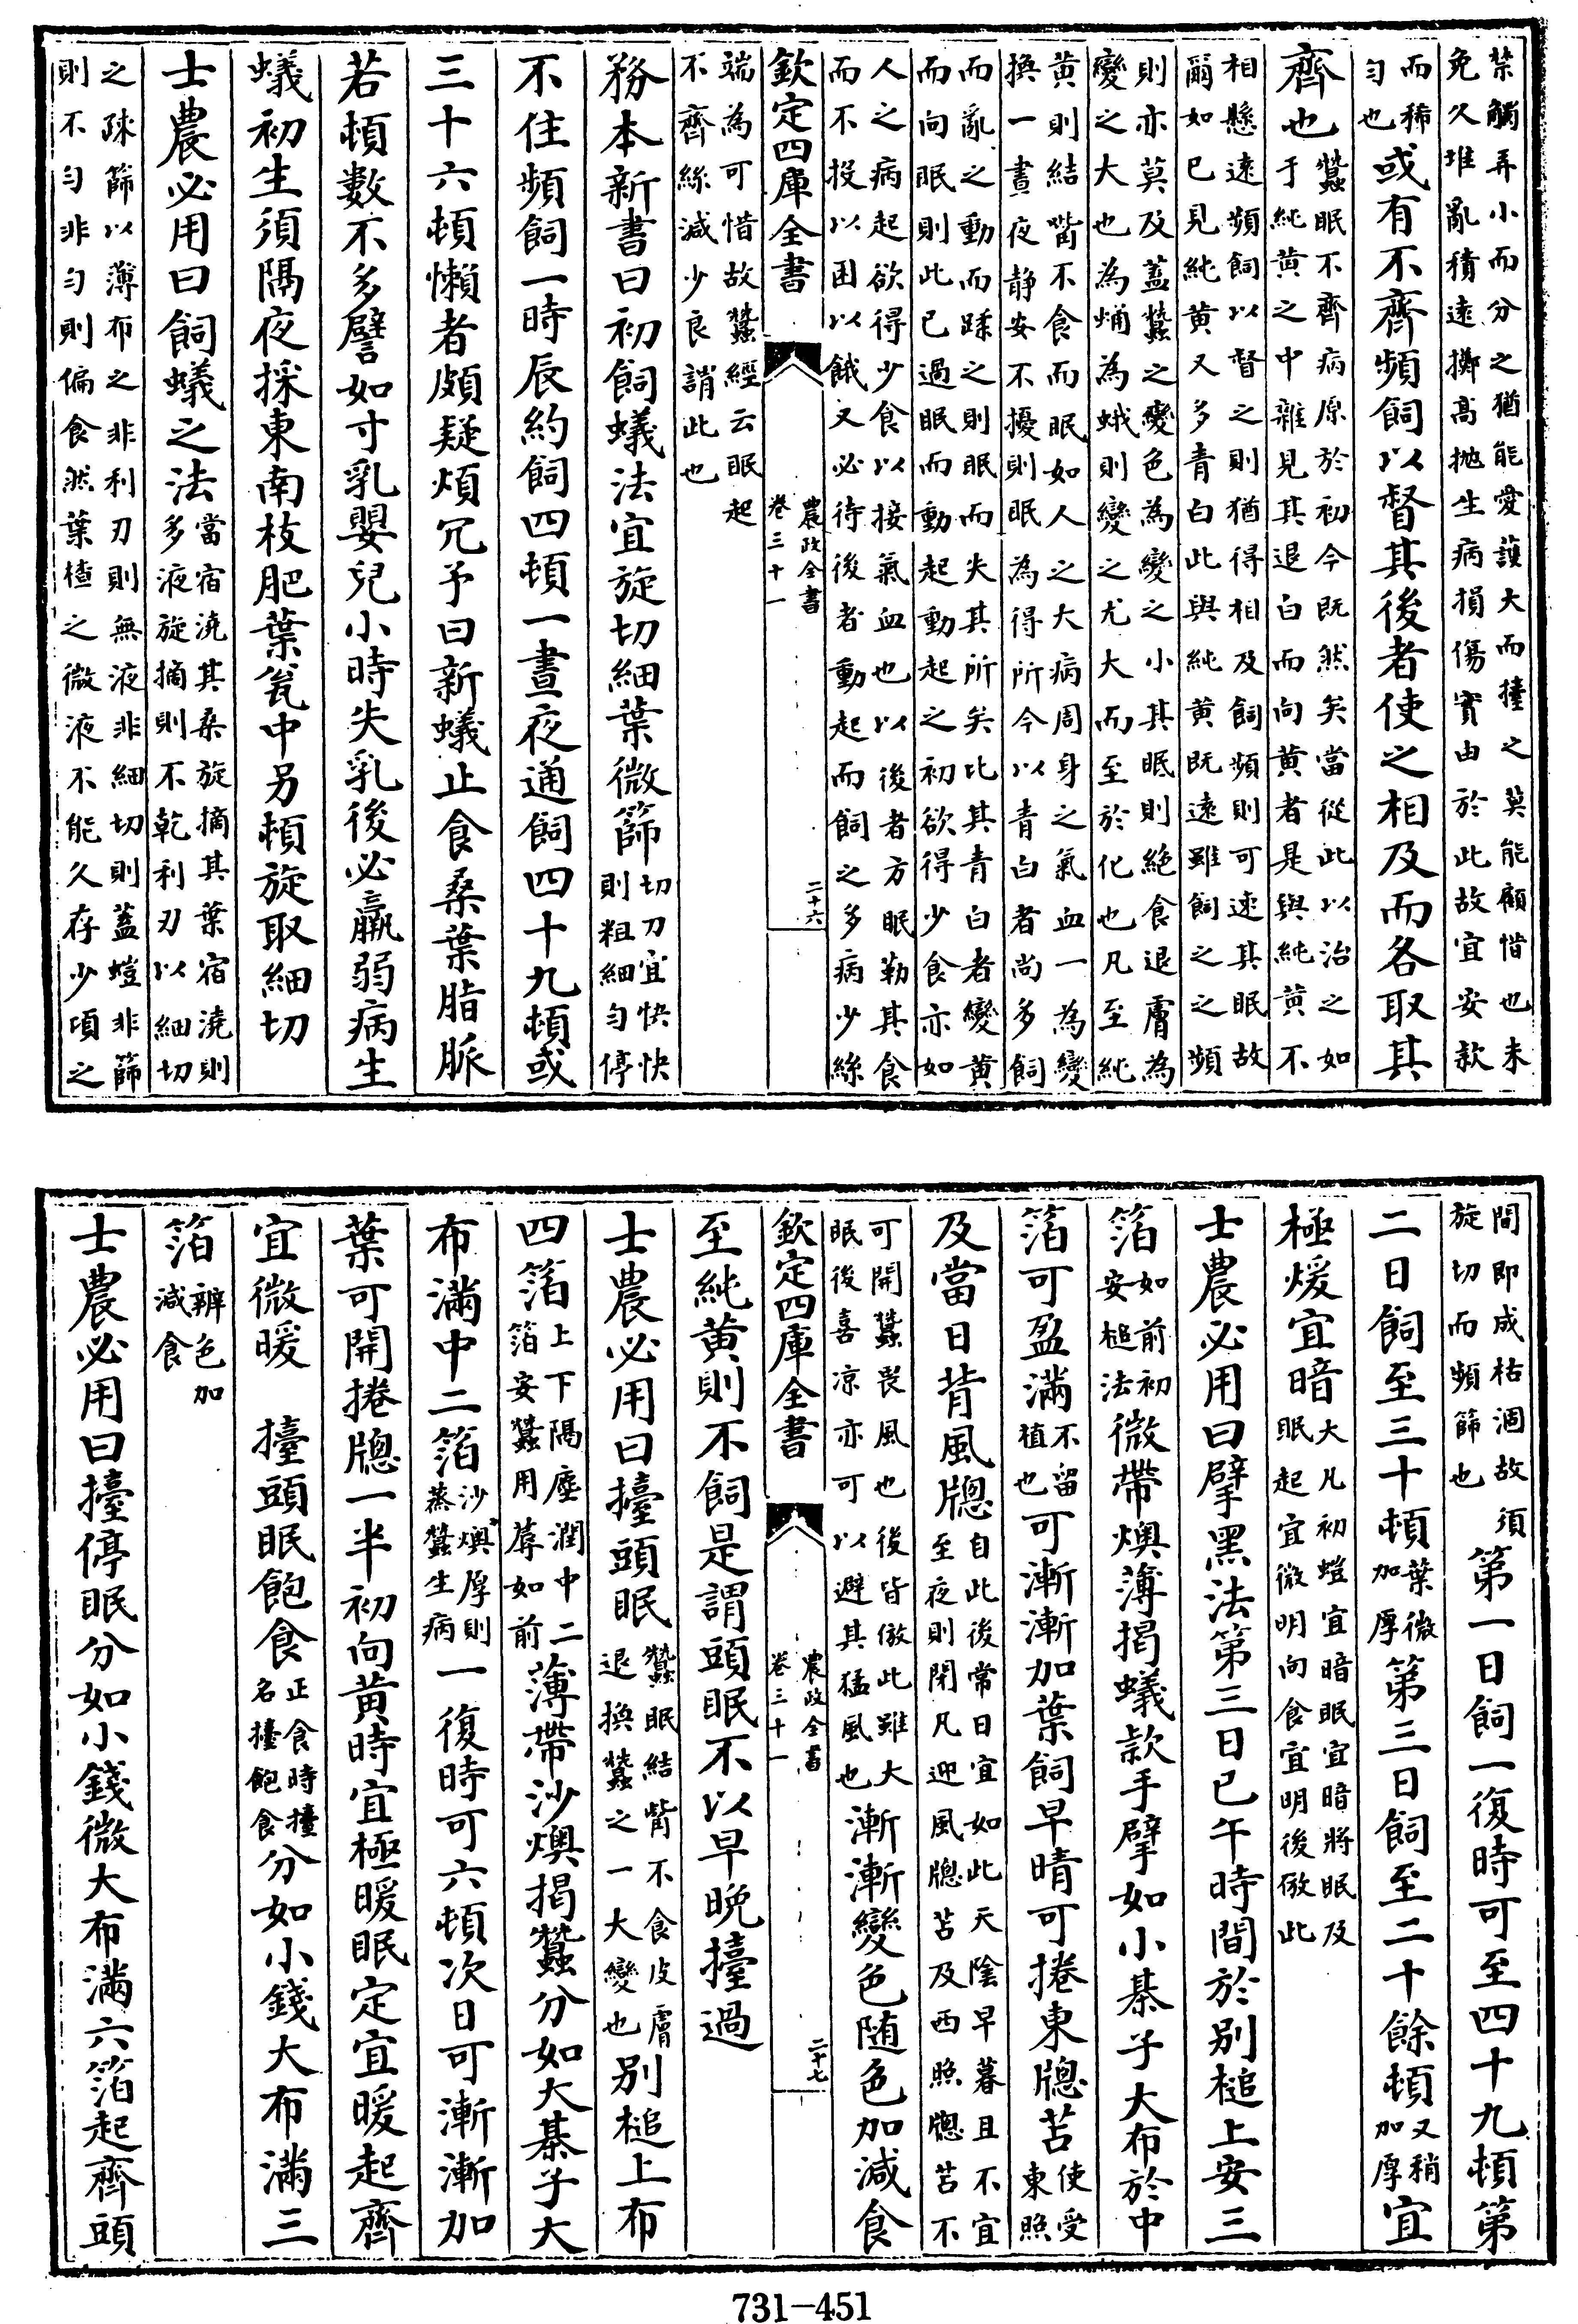 禁觸弄小而分之猶能愛護大而擡之莫能顧惜也未
免久堆亂積遠擲高抛生病損傷實由於此故宜安款
而稀
勻也
或有不齊頻飼以督其後者使之相及而各取其
齊也
蠶眠不齊病原於初今既然矣當從此以治之如
于純黄之中雜見其退白而向黄者是與純黄不
相懸遠頻飼以督之則猶得相及飼頻則可速其眠故
爾如已見純黄又多青白此與純黄既遠雖飼之之頻
則亦莫及蓋蠶之變色為變之小其眠則絶食退膚為
變之大也為蛹為蛾則變之尤大而至於化也凡至純
黄則結觜不食而眠如人之大病周身之氣血一為變
換一晝夜静安不擾則眠為得所今以青白者尚多飼
而亂之動而蹂之則眠而失其所矣比其青白者變黄
而向眠則此已過眠而動起動起之初欲得少食亦如
人之病起欲得少食以接氣血也以後者方眠勒其食
而不投以困以餓又必待後者動起而飼之多病少絲
欽定四庫全書
農政全書
卷三十一
二十六
端為可惜故蠶經云眠起
不齊絲減少良誚此也
務本新書曰初飼蟻法宜旋切細葉微篩
切刀宜快快
則粗細勻停
不住頻飼一時辰約飼四頓一晝夜通飼四十九頓或
三十六頓懶者頗疑煩冗予曰新蟻止食桑葉脂脈
若頓數不多譬如寸乳嬰兒小時失乳後必羸弱病生
蟻初生須隔夜採東南枝肥葉瓮中另頓旋取細切
士農必用曰飼蟻之法
當宿澆其桑旋摘其葉宿澆則
多液旋摘則不乾利刃以細切
之疎篩以薄布之非利刃則無液非細切則蓋螘非篩
則不勻非勻則偏食然葉楂之微液不能久存少頃之
間即成枯涸故須
旋切而頻篩也
第一日飼一復時可至四十九頓第
二日飼至三十頓
葉微
加厚
第三日飼至二十餘頓
又稍
加厚
宜
極煖宜暗
大凡初螘宜暗眠宜暗將眠及
眠起宜微明向食宜明後倣此
士農必用曰擘黑法第三日巳午時間於别槌上安三
箔
如前初
安槌法
微帶燠薄揭蟻款手擘如小棊子大布於中
箔可盈滿
不留
植也
可漸漸加葉飼早晴可捲東牕苫
使受
東照
及當日背風牕
自此後常日宜如此天陰早暮且不宜
至夜則閉凡迎風牕苫及西照牕苫不
可開蠶畏風也後皆倣此雖大
眠後喜凉亦可以避其猛風也
漸漸變色随色加減食
欽定四庫全書
農政全書
卷三十一
二十七
至純黄則不飼是謂頭眠不以早晩擡過
士農必用曰擡頭眠
蠶眠結觜不食皮膚
退換蠶之一大變也
别槌上布
四箔
上下隔塵潤中二
箔安蠶用蓐如前
薄帶沙燠揭蠶分如大棊子大
布滿中二箔
沙燠厚則
蒸蠶生病
一復時可六頓次日可漸漸加
葉可開捲牕一半初向黄時宜極暖眠定宜暖起齊
宜微暖　擡頭眠飽食
正食時擡
名擡飽食
分如小錢大布滿三
箔
辨色加
減食
士農必用曰擡停眠分如小錢微大布滿六箔起齊頭
731-451